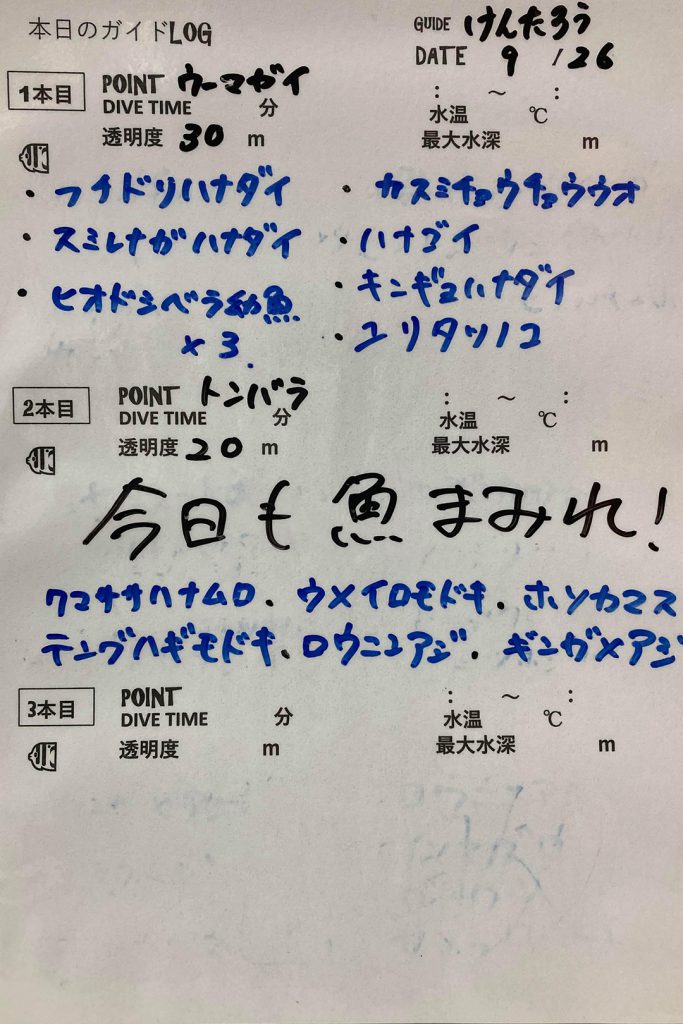 本日のガイドLOG
GUIDE けんたろう
DATE 9 / 26
1本目 POINT ウーマガイ
DIVE TIME 分 : ～ :
水温 ℃
透明度 30 m 最大水深 m
・フチドリハナダイ ・カスミチョウチョウウオ
・スミレナガハナダイ ・ハナゴイ
・ヒオドシベラ幼魚 ・キンギョハナダイ
×3. ・ユリタツノコ
2本目 POINT トンバラ : ～ :
DIVE TIME 分 水温 ℃
透明度 20 m 最大水深 m
今日も魚まみれ!
クマササハナムロ.ウメイロモドキ.ホソカマス
テングハギモドキ.ロウニンアジ.ギンガメアジ
3本目 POINT : ～ :
DIVE TIME 分 水温 ℃
透明度 m 最大水深 m